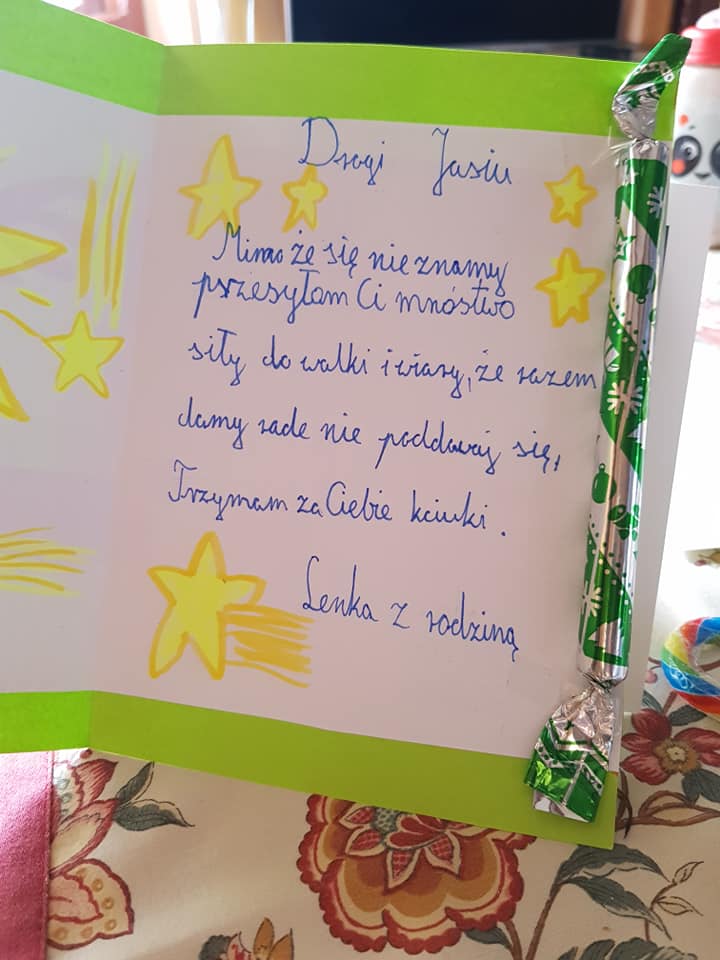 Drogi Jasiu
Mimo że się nie znamy
przesyłam Ci mnóstwo
siły do walki i wiary, że razem
damy rade nie poddawaj się,
Trzymam za Ciebie kciuki.
Lenka z rodziną